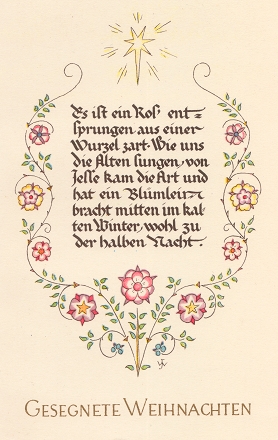 Es ist ein Ros ent=
sprungen aus einer
Wurzel zart. Wie uns
die Alten sungen, von
Jesse kam die Art und
hat ein Blümlein
bracht mitten im kal=
ten Winter, wohl zu
der halben Nacht.
GESEGNETE WEIHNACHTEN